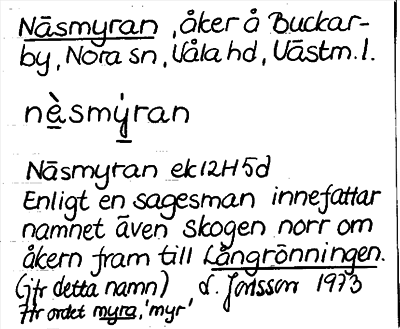 Näsmyran, åker å Buckar-
by, Nora sn, Våla hd, Västm. l.
nèsmýran
Näsmyran ek 12H 5d
Enligt en sagesman innefattar
namnet även skogen norr om
åkern fram till Långrönningen.
(jfr detta namn) L. Jonsson 1973
Här ordet myra, 'myr'